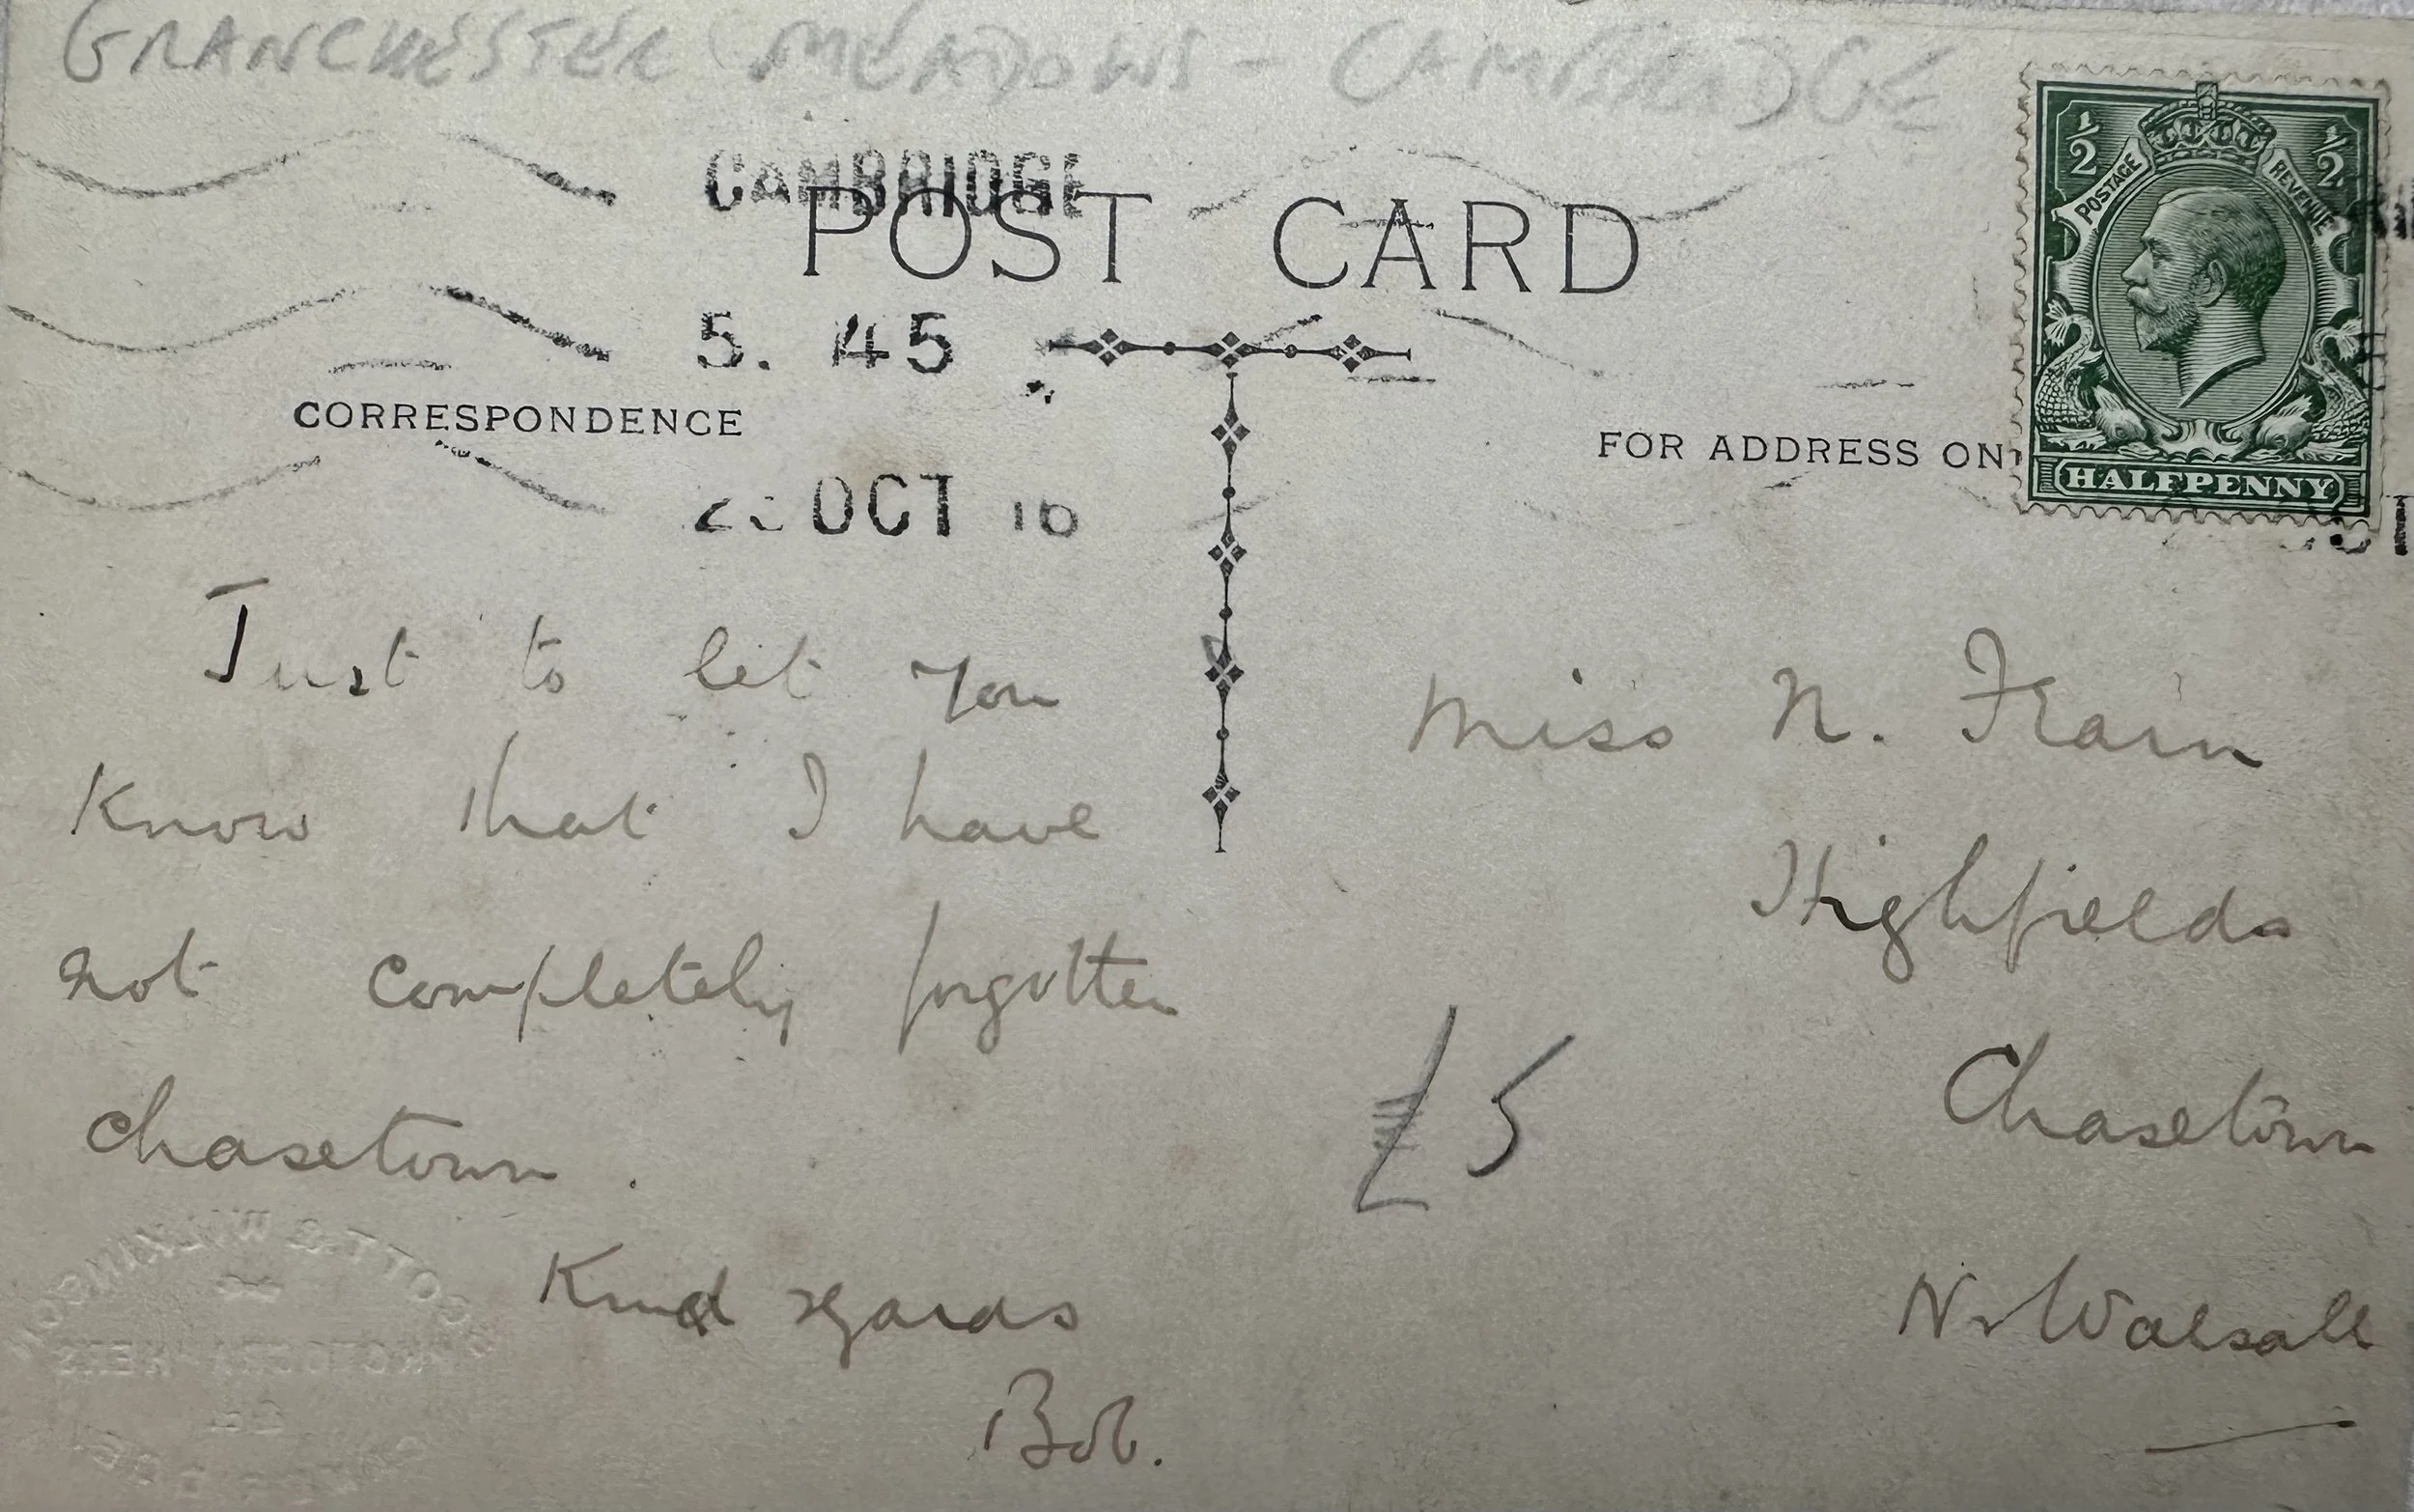 GRANCHESTER MEADOWS - CAMBRIDGE
CAMBRIDGE
POST CARD
5. 45
OCT 16
CORRESPONDENCE
FOR ADDRESS ON
1/2 1/2
POSTAGE REVENUE
HALFPENNY
Just to let you
know that I have
not completely forgotten
Chasetown.
Kind regards
Bob.
Miss N. Frain
Highfields
Chasetown
Nr Walsall
£5
& WILKINSON